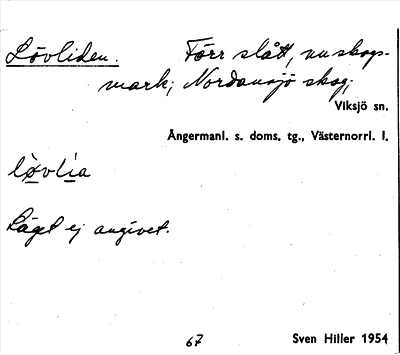 Lövliden. Förr slått, nu skogs-
mark; Nordansjö skog;
Viksjö sn.
Ångermanl. s. doms. tg., Västernorrl. l.
lövlia
Läget ej angivet.
67 Sven Hiller 1954